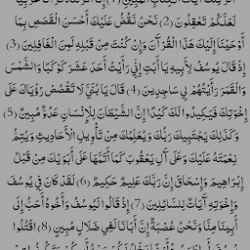 لَعَلَّكُمْ تَعْقِلُونَ (2) نَحْنُ نَقُصُّ عَلَيْكَ أَحْسَنَ الْقَصَصِ بِمَا
أَوْحَيْنَا إِلَيْكَ هَذَا الْقُرْآنَ وَإِنْ كُنْتَ مِنْ قَبْلِهِ لَمِنَ الْغَافِلِينَ (3)
إِذْ قَالَ يُوسُفُ لِأَبِيهِ يَا أَبَتِ إِنِّي رَأَيْتُ أَحَدَ عَشَرَ كَوْكَبًا وَالشَّمْسَ
وَالْقَمَرَ رَأَيْتُهُمْ لِي سَاجِدِينَ (4) قَالَ يَا بُنَيَّ لَا تَقْصُصْ رُؤْيَاكَ عَلَى
إِخْوَتِكَ فَيَكِيدُوا لَكَ كَيْدًا إِنَّ الشَّيْطَانَ لِلْإِنْسَانِ عَدُوٌّ مُبِينٌ (5)
وَكَذَلِكَ يَجْتَبِيكَ رَبُّكَ وَيُعَلِّمُكَ مِنْ تَأْوِيلِ الْأَحَادِيثِ وَيُتِمُّ
نِعْمَتَهُ عَلَيْكَ وَعَلَى آلِ يَعْقُوبَ كَمَا أَتَمَّهَا عَلَى أَبَوَيْكَ مِنْ قَبْلُ
إِبْرَاهِيمَ وَإِسْحَاقَ إِنَّ رَبَّكَ عَلِيمٌ حَكِيمٌ (6) لَقَدْ كَانَ فِي يُوسُفَ
وَإِخْوَتِهِ آيَاتٌ لِلسَّائِلِينَ (7) إِذْ قَالُوا لَيُوسُفُ وَأَخُوهُ أَحَبُّ إِلَى
أَبِينَا مِنَّا وَنَحْنُ عُصْبَةٌ إِنَّ أَبَانَا لَفِي ضَلَالٍ مُبِينٍ (8) اقْتُلُوا